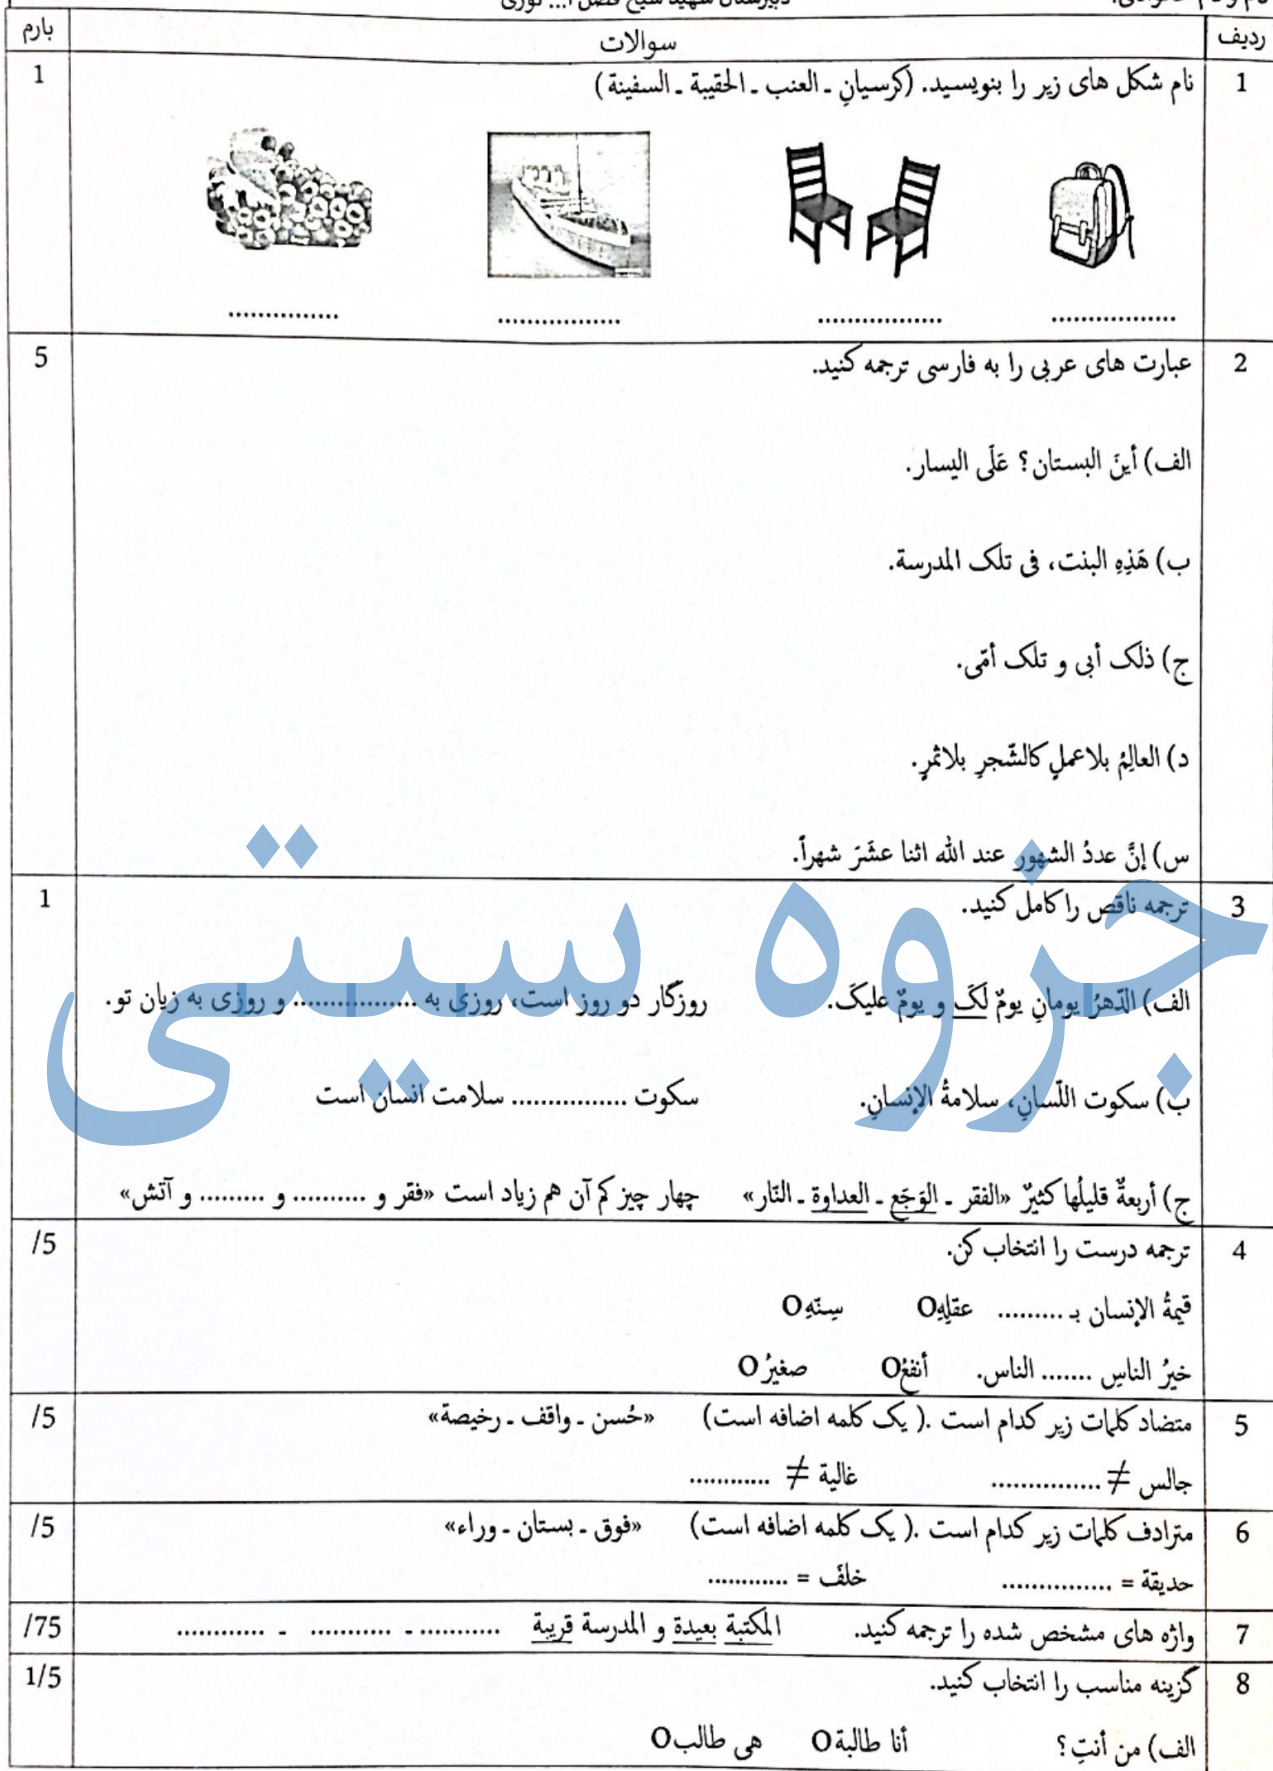 ردیف سوالات بارم
1 نام شکل های زیر را بنویسید. (کرسیانِ ـ العنب ـ الحقیبة ـ السفینة) 1
................. ................. ................. ...............
2 عبارت های عربی را به فارسی ترجمه کنید. 5
الف) أینَ البستان؟ عَلَی الیسار.
ب) هَذِهِ البنت، فی تلک المدرسة.
ج) ذلک أبی و تلک أمّی.
د) العالِمُ بلاعملٍ کالشّجرِ بلاثمرٍ.
س) إنَّ عددُ الشهور عند الله اثنا عشَرَ شهراً.
3 ترجمه ناقص را کامل کنید. 1
الف) الدّهرُ یومانِ یومٌ لَکَ و یومٌ علیکَ. روزگار دو روز است، روزی به ................. و روزی به زیان تو.
ب) سکوت اللّسانِ، سلامةُ الإنسانِ. سکوت ................ سلامت انسان است
ج) أربعةٌ قلیلُها کثیرٌ «الفقر ـ الوَجَع ـ العداوة ـ النّار» چهار چیز کم آن هم زیاد است «فقر و .......... و ......... و آتش»
4 ترجمه درست را انتخاب کن. /5
قیمةُ الإنسان بـ ......... عقلِهِO سِنّهِO
خیرُ الناسِ ....... الناس. أنفعُO صغیرُO
5 متضاد کلمات زیر کدام است .( یک کلمه اضافه است) «حُسن ـ واقف ـ رخیصة» /5
جالس ≠ ............... غالیة ≠ ............
6 مترادف کلمات زیر کدام است .( یک کلمه اضافه است) «فوق ـ بستان ـ وراء» /5
حدیقة = ............... خلفَ = ............
7 واژه های مشخص شده را ترجمه کنید. المکتبة بعیدة و المدرسة قریبة ........... ـ ........... ـ ............ /75
8 گزینه مناسب را انتخاب کنید. 1/5
الف) من أنتِ؟ أنا طالبةO هی طالبO
جزوه سیتی